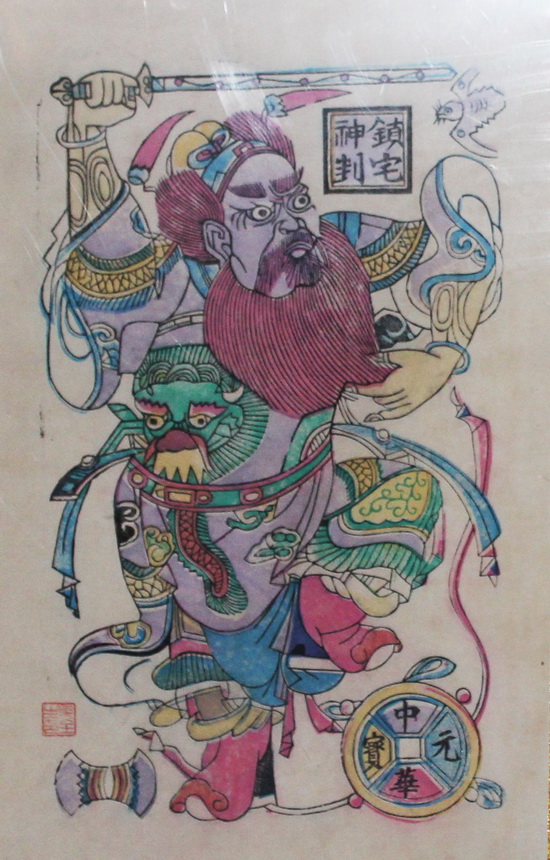 鎮宅
神判
中華
元寶